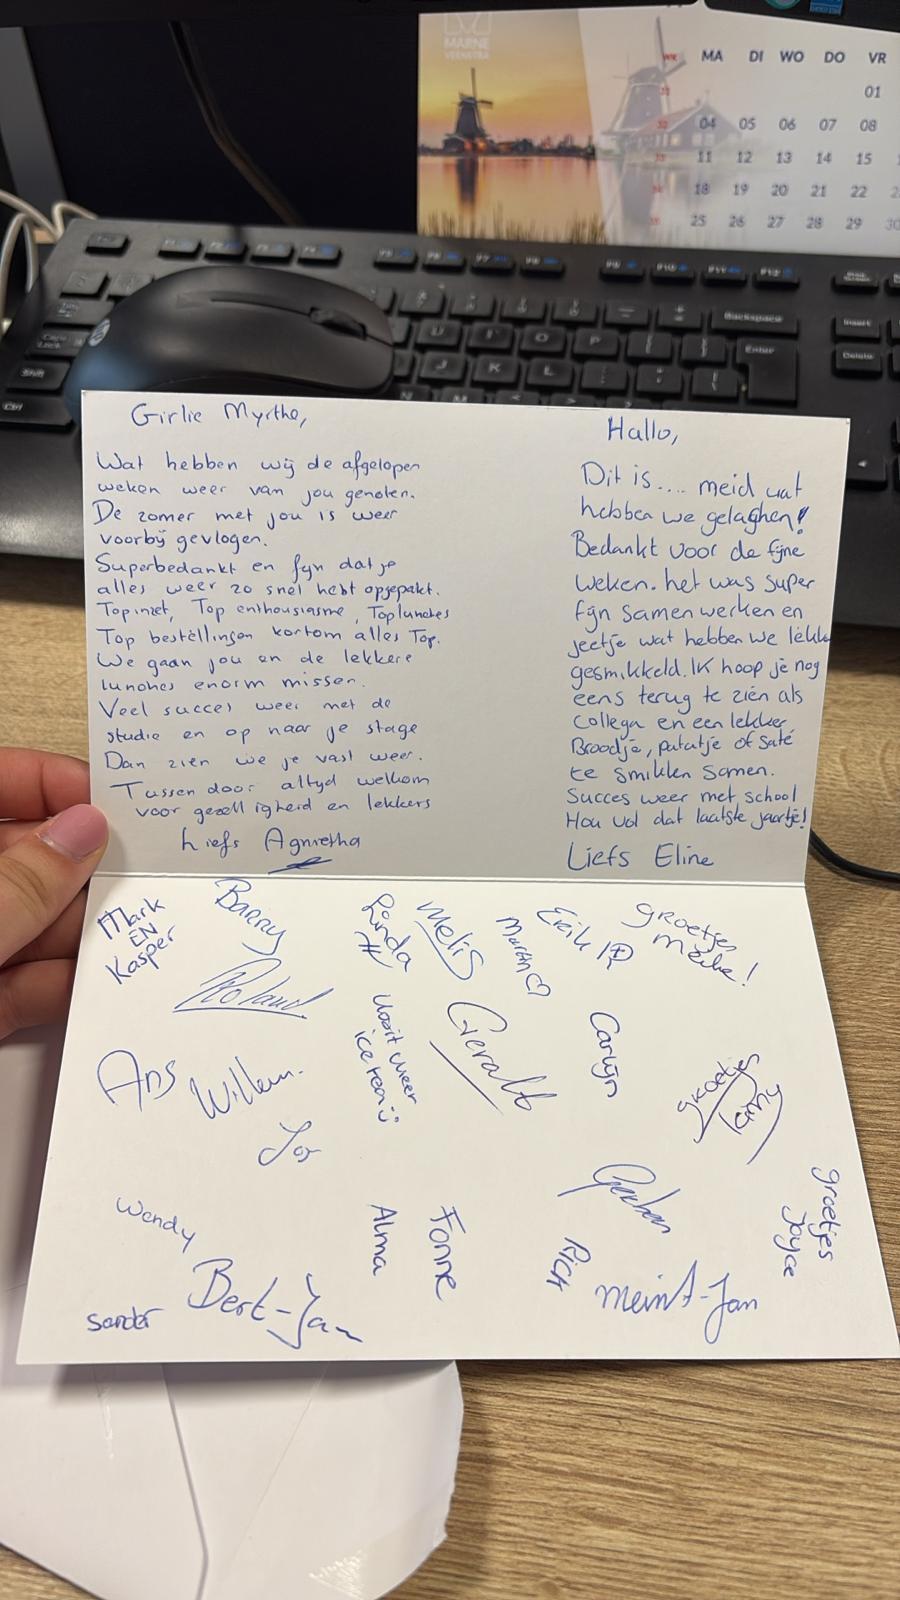 MARNE
VEENSTRA
WK MA DI WO DO VR
31 01
32 04 05 06 07 08
33 11 12 13 14 15
34 18 19 20 21 22
35 25 26 27 28 29 30
Backspace
Enter
Insert
Delete
Shift
Ctrl
Girlie Myrthe,
Wat hebben wij de afgelopen
weken weer van jou genoten.
De zomer met jou is weer
voorbij gevlogen.
Superbedankt en fijn dat je
alles weer zo snel hebt opgepakt.
Top inzet, Top enthousiasme, Top lunches
Top bestellingen kortom alles Top.
We gaan jou en de lekkere
lunches enorm missen.
Veel succes weer met de
studie en op naar je stage
Dan zien we je vast weer.
Tussen door altyd welkom
voor gezelligheid en lekkers
Liefs Agnietha
Hallo,
Dit is.... meid wat
hebben we gelaghen!
Bedankt voor de fijne
weken. het was super
fijn samenwerken en
jeetje wat hebben we lekke
gesmikkeld. IK hoop je nog
eens terug te zien als
collega en een lekker
Broodje, patatje of saté
te smikklen samen.
Succes weer met school
Hou vol dat laatste jaartje!
Liefs Eline
Mark
EN
Kasper
Barry
Linda
Melis
Martin
Erik
groetjes
Roland
Nooit weer
ice tea :)
Geralt
Carlijn
groetjes
Tamy
Ans
Willem.
Jos
Wendy
Alma
Fonne
Rick
groetjes
Joyce
Sander
Bert-Jan
Meint-Jan